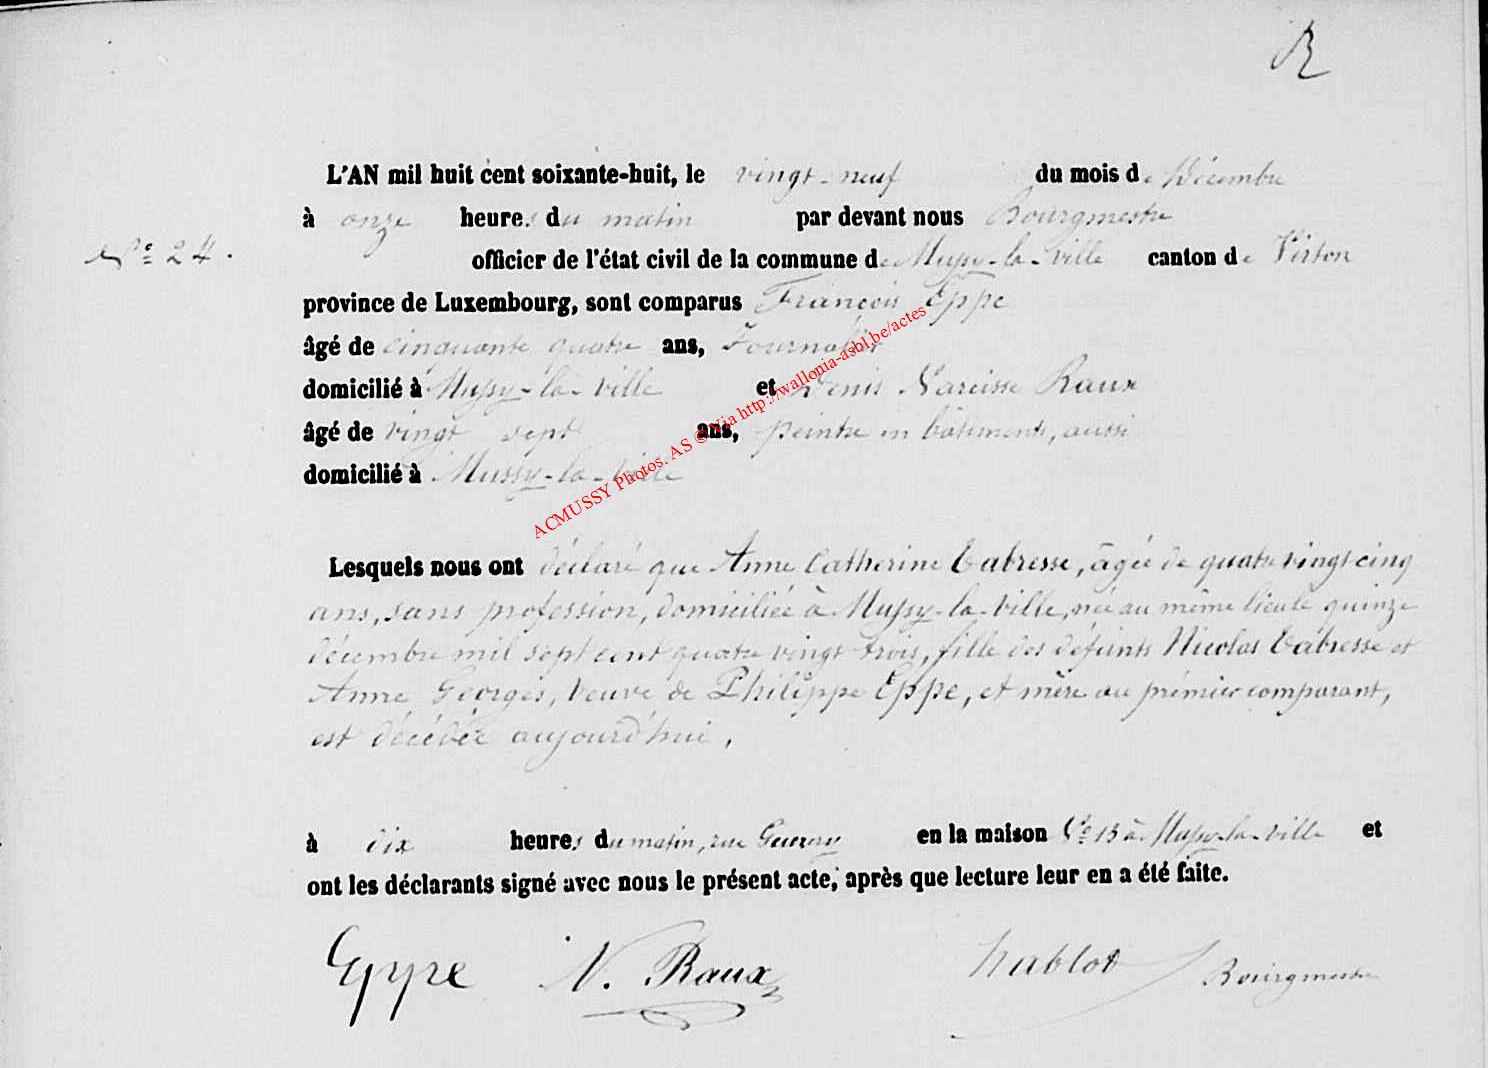 R
L'AN mil huit cent soixante-huit, le vingt-neuf du mois de Décembre
à onze heures du matin par devant nous Bourgmestre
N° 24.
officier de l'état civil de la commune de Mussy-la-Ville canton de Virton
province de Luxembourg, sont comparus François Eppe
âgé de cinquante quatre ans, Journalier
domicilié à Mussy-la-Ville et Denis Narcisse Raux
âgé de vingt sept ans, peintre en bâtiments, aussi
domicilié à Mussy-la-Ville
ACMUSSY Photos. AS © Via http://wallonia-asbl.be/actes
Lesquels nous ont déclaré que Anne Catherine Tabresse, âgée de quatre vingt cinq
ans, sans profession, domiciliée à Mussy-la-Ville, née au même lieu le quinze
décembre mil sept cent quatre vingt trois, fille des défunts Nicolas Tabresse et
Anne Georges, veuve de Philippe Eppe, et mère au prémier comparant,
est décédée aujourd'hui,
à dix heures du matin, rue en la maison N° 13 à Mussy-la-Ville et
ont les déclarants signé avec nous le présent acte, après que lecture leur en a été faite.
Eppe N. Raux hablot Bourgmestre